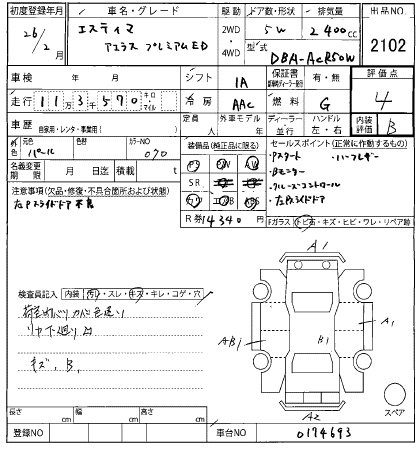 初度登録年月 車名・グレード 駆動 ドア数・形状 排気量 出品NO
26/2 月 エスティマ 2WD ・ 4WD 5W 2400cc
アエラス プレミアムED 型式 DBA-ACR50W 2102
車検 年 月 シフト IA 保証書 有・無 評価点
走行 11万3千570 キロ・マイル 冷房 AAC 燃料 G 4
車歴 自家用・レンタ・事業用( ) 定員 人 外車モデル 年 ディーラー・並行 ハンドル 左・右 内装評価 B
外色 元色 パール 色替 カラーNO 070
装備品(純正品に限る) セールスポイント(正常に作動するもの)
名義変更期限 月 日迄 積載 t
PS PW
SR AW
ABS
Pスタート ハーフレザー
Bモニター
クルーズコントロール
左Pスライドドア
注意事項(欠品・修復・不具合箇所および状態)
左Pスライドドア不良
R券 14340 円
Fガラス トビ石・キズ・ヒビ・ワレ・リペア跡
検査員記入 内装 汚れ・スレ・キズ・キレ・コゲ・穴
キズ、B,
A1
AB1
B1
A1
A2
スペア
長さ cm 幅 cm 高さ cm
登録NO 車台NO 0174693